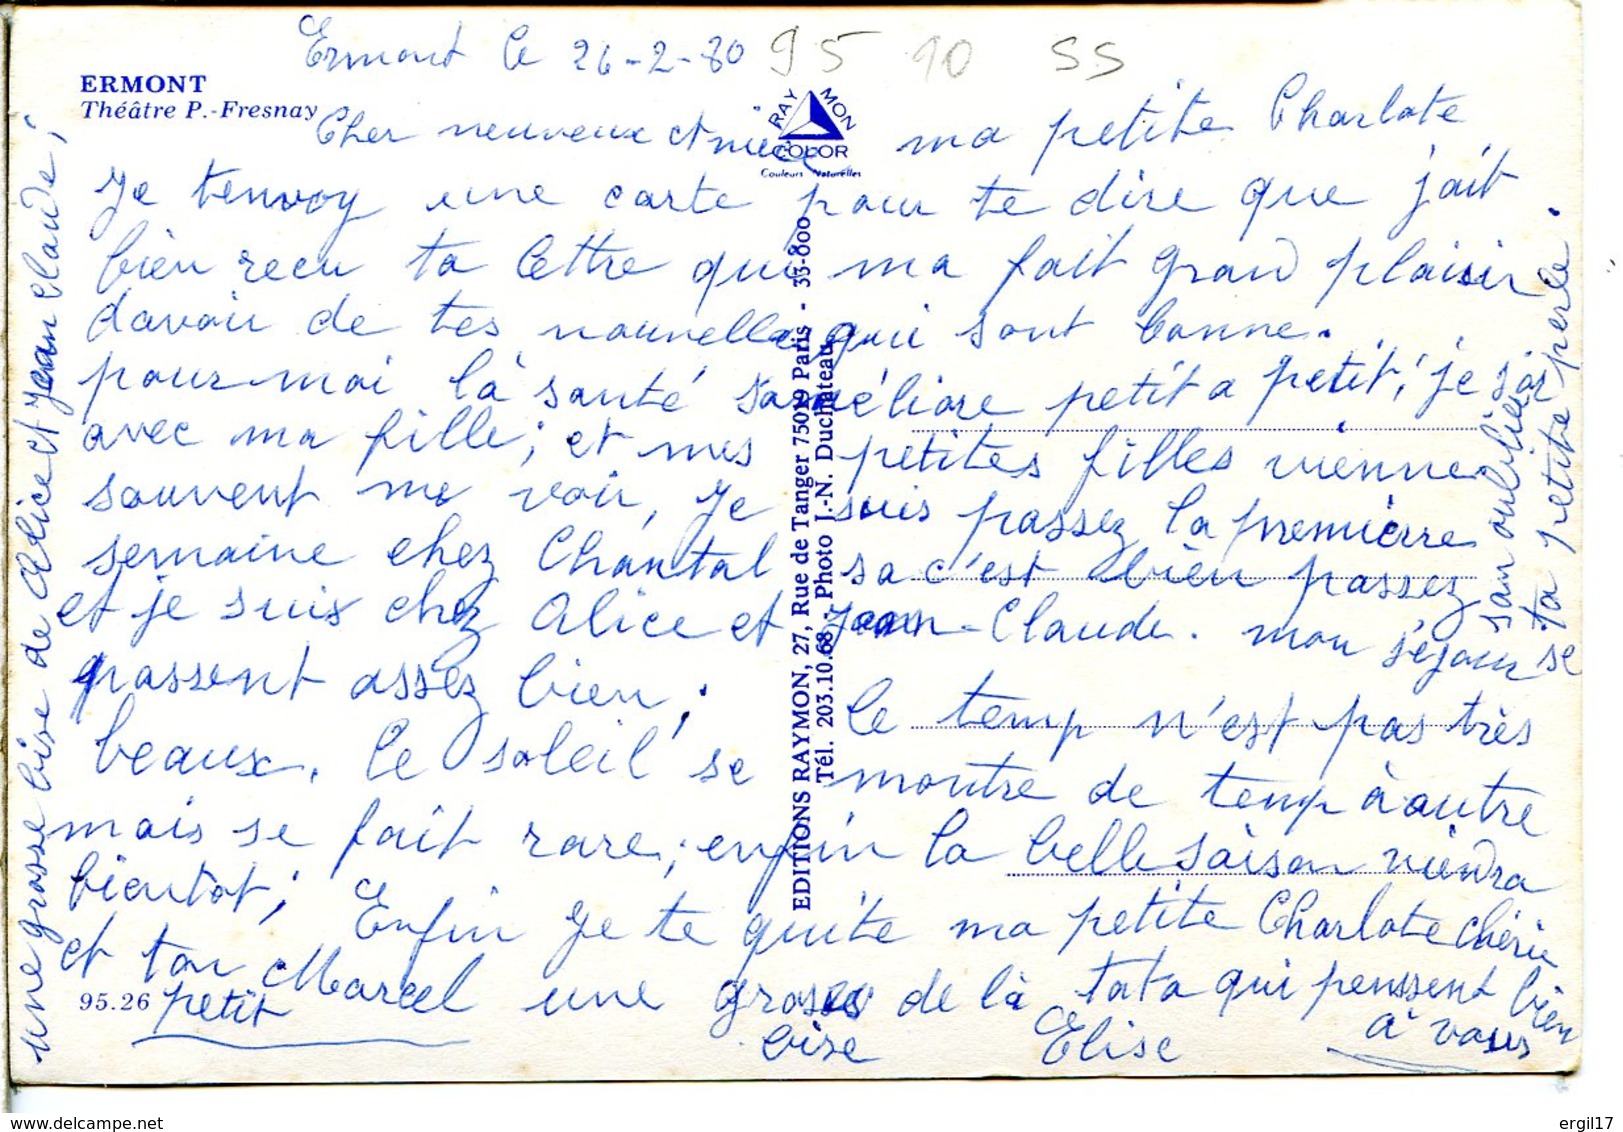 Ermont le 26-2-80
95 10 SS
ERMONT
Théâtre P.-Fresnay
RAYMON
COLOR
Couleurs Naturelles
Cher neuveux et nièce ma petite Charlote
Je tenvoy une carte pour te dire que j'ait
bien recu ta lettre qui ma fait grand plaisir
davoir de tes nouvelles qui sont bonne.
pour moi la santé saméliore petit a petit, je sor
avec ma fille, et mes petites filles vienne
souvent me voir, Je suis passez la premierre
semaine chez Chantal sa c'est bien passez
et je suis chez Alice et Jean-Claude. mon séjour se
passent assez bien; le temp n'est pas très
beaux. le soleil se montre de temp à autre
mais se fait rare; enfin la belle saison viendra
bientot; Enfin Je te quite ma petite Charlote chérie
et ton petit Marcel une grosse bise de la tata qui penssent bien à vous
Elise
une grosse bise de Alice et Jean Claude;
san oublier
ta petite perle.
EDITIONS RAYMON, 27, Rue de Tanger 75019 Paris - 33-800
Tél. 203.10.68 - Photo J.-N. Duchateau
95.26
www.delcampe.net
ergil17